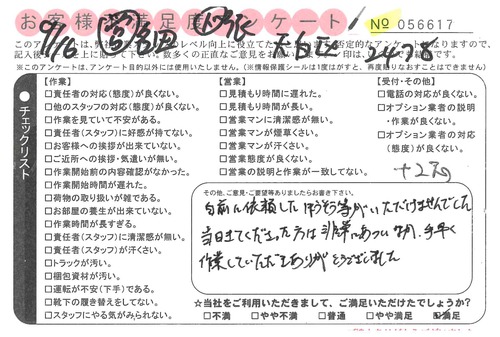 お客様満足度アンケート
No 056617
9/6
記入後
※このアンケートは、アンケート目的以外には使用いたしません。(※情報保護シールは1度はがすと、再度貼りなおすことはできません)
チェックリスト
【作業】
□責任者の対応(態度)が良くない。
□他のスタッフの対応(態度)が良くない。
□作業を見ていて不安がある。
□責任者(スタッフ)に好感が持てない。
□お客様への挨拶が出来ていない。
□ご近所への挨拶・気遣いが無い。
□作業開始前の内容確認がなかった。
□作業開始時間が遅れた。
□荷物の取り扱いが雑である。
□お部屋の養生が出来ていない。
□作業時間が長すぎる。
□責任者(スタッフ)に清潔感が無い。
□責任者(スタッフ)が汗くさい。
□トラックが汚い。
□梱包資材が汚い。
□運転が安全(下手)である。
□靴下の履き替えをしてない。
□スタッフにやる気がみられない。
【営業】
□見積もり時間に遅れた。
□見積もり時間が長い。
□営業マンに清潔感が無い。
□営業マンが煙草くさい。
□営業マンが汗くさい。
□営業態度が良くない。
□営業の説明と作業が一致してない。
【受付・その他】
□電話の対応が良くない。
□オプション業者の説明
・作業が良くない。
□オプション業者の対応
(態度)が良くない。
その他、ご意見・ご要望等ありましたらお書き下さい。
当日きてくださった方は非常にあつい中、手早く
作業していただきありがとうございました
☆当社をご利用いただきまして、ご満足いただけでしょうか?
□不満 □やや不満 □普通 □やや満足 ☑満足